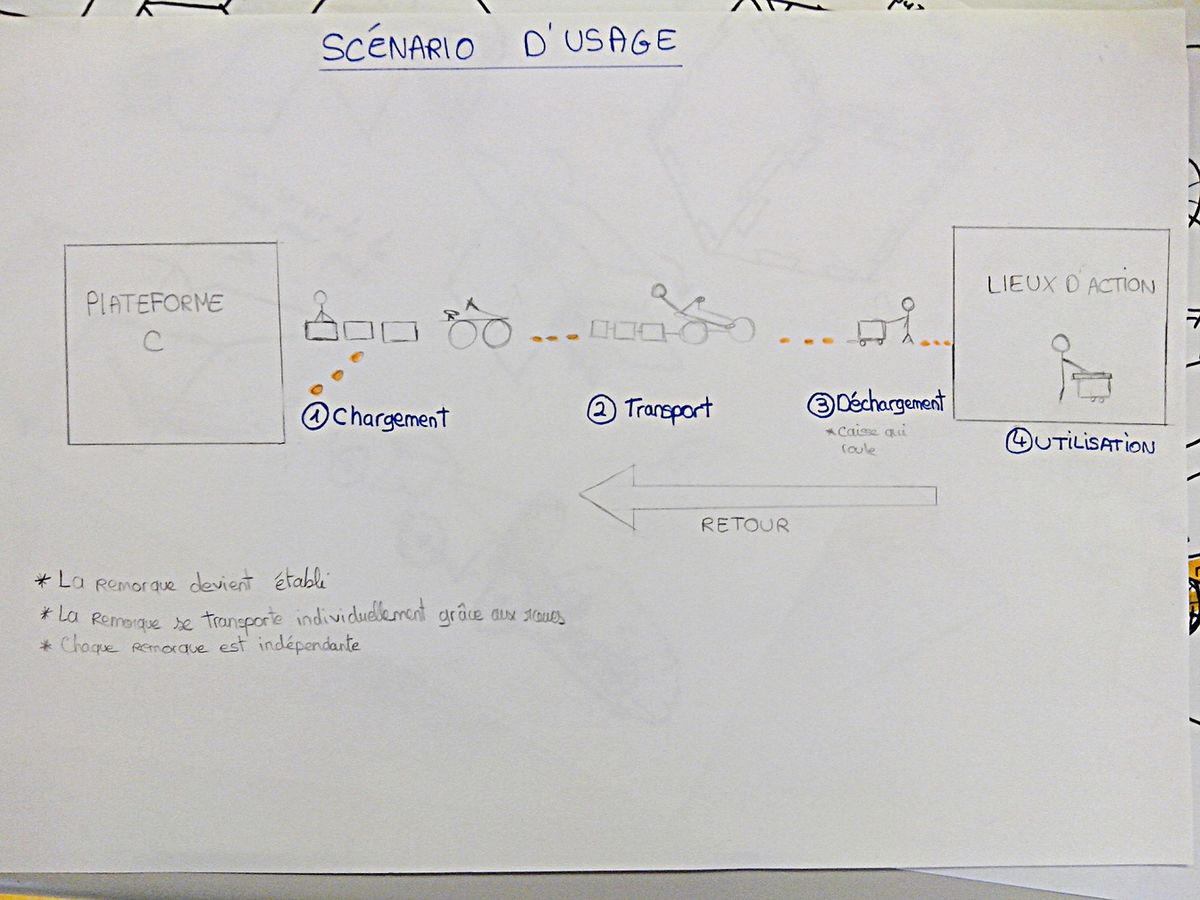 SCÉNARIO D'USAGE
PLATEFORME
C
LIEUX D'ACTION
① Chargement
② Transport
③ Déchargement
* Caisse qui
roule
④ UTILISATION
RETOUR
* La remorque devient établi
* La remorque se transporte individuellement grâce aux roues
* Chaque remorque est indépendante